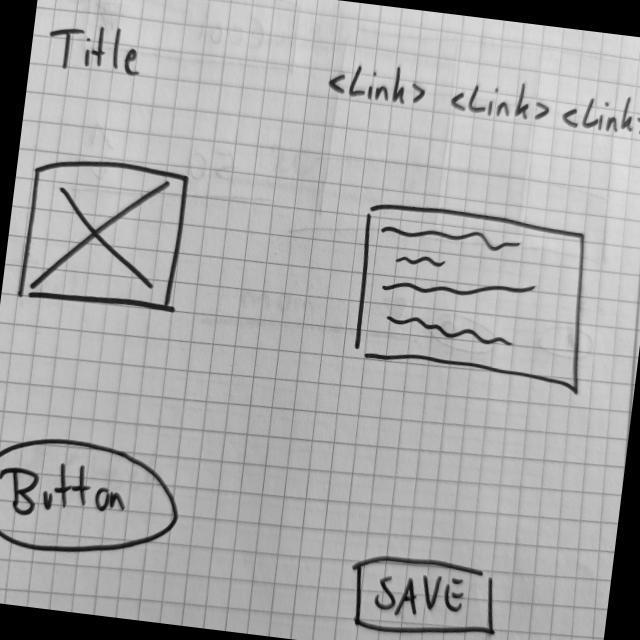 Title
<Link> <Link> <Link>
Button
SAVE